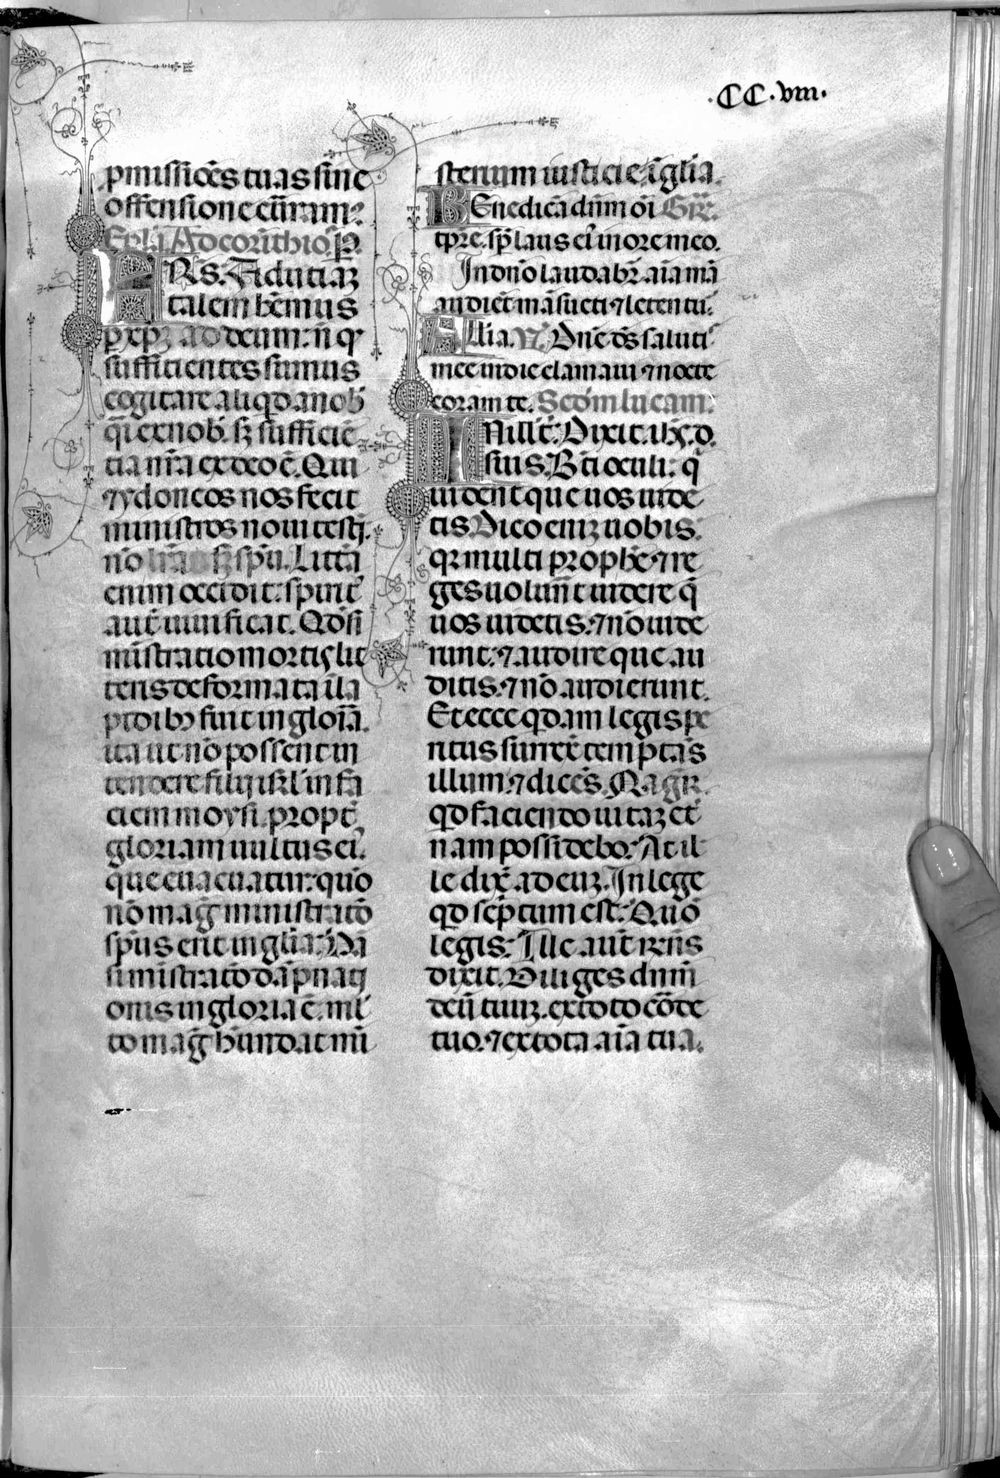 .CC.viii.
pmissiōēs tuas sine
offensione cūram⁊
Epl'i Ad corinthios. p̄.
FRS. Fiduciaꝫ
talem hēmus
p xp̄ꝫ ad deum: n̄ qͥ
sufficientes simus
cogitare aliqd a nob̄
qͣi ex nob̄. sꝫ sufficiē
tia nr̄a ex deo ē. Qui
⁊ ydoneos nos fecit
ministros noui testī.
nō l'rā sꝫ sp̄u. Littā
enim occidit: spirit᷒
aut̄ uiuificat. Qd̄ si
mīstratio mortis lit
teris deformata ī la
pidibꝫ fuit in gloīa.
ita ut nō possent in
tendere filij isrl' in fa
ciem moysi. propt̄
gloriam uultus ei᷒.
que euacuatur: quō
nō mag̃ ministratō
sp̄us erit in gl'ia. Nā
si mīstratō dāpnati
onis in gloria ē. ml'
to mag̃ hūndat mī
sterium iusticie ī gl'ia.
BEnedicā dn̄m in oī Gr̄.
tpr̄e. sp̄ laus ei᷒ in ore meo.
In dn̄o laudabr̄. aīa mā
audiēt māsueti ⁊ letentur.
Allīa. V̄. Dn̄e ds̄ saluti᷒
mee in die clamaui ⁊ nocte
coram te. Scd̄m lucam.
IN ill'. t̄. Dixit. ih̄c. d.
suis. Bt̄i oculi: q̄
uident que uos uide
tis. Dico eniꝫ uobis.
qr multi prophē ⁊ re
ges uoluūt uidere q̄
uos uidetis: ⁊ nō uide
runt: ⁊ audire que au
ditis: ⁊ nō audierunt.
Et ecce qdam legis pe
ritus surrex̄ temptās
illum ⁊ dicēs. Magr̄.
qd faciendo uitaꝫ et᷒
nam possidebo: At il
le dix̄ ad euꝫ. In lege
qd scp̄tum est: Quō
legis: Ille aut̄ rn̄ns
dixit. Diliges dn̄m
deū tuuꝫ. ex toto cōrde
tuo. ⁊ ex tota aīa tua.